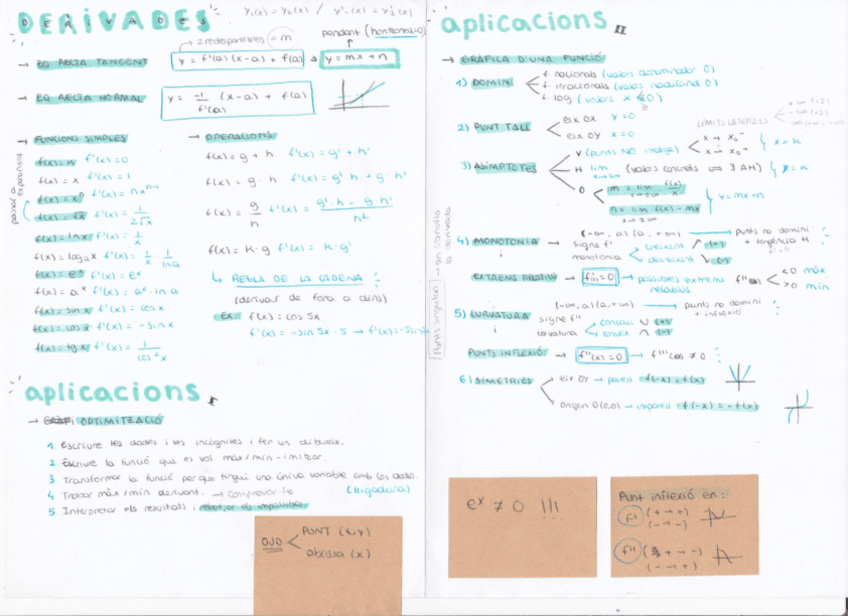 DERIVADES
y₁(x) = y₂(x) / y'₁(x) = y'₂(x)
→ EQ RECTA TANGENT
y = f'(a) (x-a) + f(a)
y = mx + n
= m
pendent (horitzontal=0)
→ EQ RECTA NORMAL
y = -1/f'(a) (x-a) + f(a)
→ FUNCIONS SIMPLES
f(x) = k f'(x) = 0
f(x) = x f'(x) = 1
f(x) = xⁿ f'(x) = n xⁿ⁻¹
f(x) = √x f'(x) = 1/2√x
f(x) = ln x f'(x) = 1/x
f(x) = logₐx f'(x) = 1/x · 1/ln a
f(x) = eˣ f'(x) = eˣ
f(x) = aˣ f'(x) = aˣ · ln a
f(x) = sin x f'(x) = cos x
f(x) = cos x f'(x) = -sin x
f(x) = tg x f'(x) = 1/cos²x
→ OPERACIONS
f(x) = g + h f'(x) = g' + h'
f(x) = g · h f'(x) = g' · h + g · h'
f(x) = g/h f'(x) = g' · h - g · h'/h²
f(x) = k · g f'(x) = k · g'
↳ REGLA DE LA CADENA
(derivar de fora a dins)
Ex: f(x) = cos 5x
f'(x) = -sin 5x · 5 →
aplicacions I
→ OPTIMITZACIÓ
1 Escriure les dades i les incògnites i fer un dibuix.
2 Escriure la funció que es vol màx/mín-imitzar.
3 Transformar la funció perque tingui una única variable amb les dades.
4 Trobar màx/mín derivant. → comprovar-lo
5 Interpretar els resultats i
OJO
PUNT (x,y)
abcissa (x)
aplicacions II
→ GRÀFICA D'UNA FUNCIÓ
1) DOMINI
f. racionals (valors denominador 0)
f. irracionals (valors radicand 0)
f. log (valors x ≤ 0)
2) PUNT TALL
eix OX y=0
eix OY x=0
3) ASÍMPTOTES
LÍMITS LATERALS
V (punts NO domini)
x → x₀⁻
x → x₀⁺
H lim x→±∞
O m = lim f(x)/x
n = lim f(x) - mx
y = mx + n
4) MONOTONIA
(-∞, a) (a, +∞) → punts no domini + tangència H
signe f'
monotonia
creixent (+)
decreixent (-)
EXTREMS RELATIUS → f'(x) = 0 → possibles extrems relatius
f''(a) <0 màx
>0 mín
5) CURVATURA
(-∞, a) (a, +∞) → punts no domini + inflexió
signe f''
curvatura
∪ (+)
∩ (-)
PUNTS INFLEXIÓ → f''(x) = 0 → f'''(a) ≠ 0
6) SIMETRIES
eix OY → parell f(-x) = f(x)
origen O(0,0) → imparell f(-x) = -f(x)
eˣ ≠ 0 !!!
Punt inflexió en:
f' (+ → +)
(- → -)
f'' (+ → -)
(- → +)